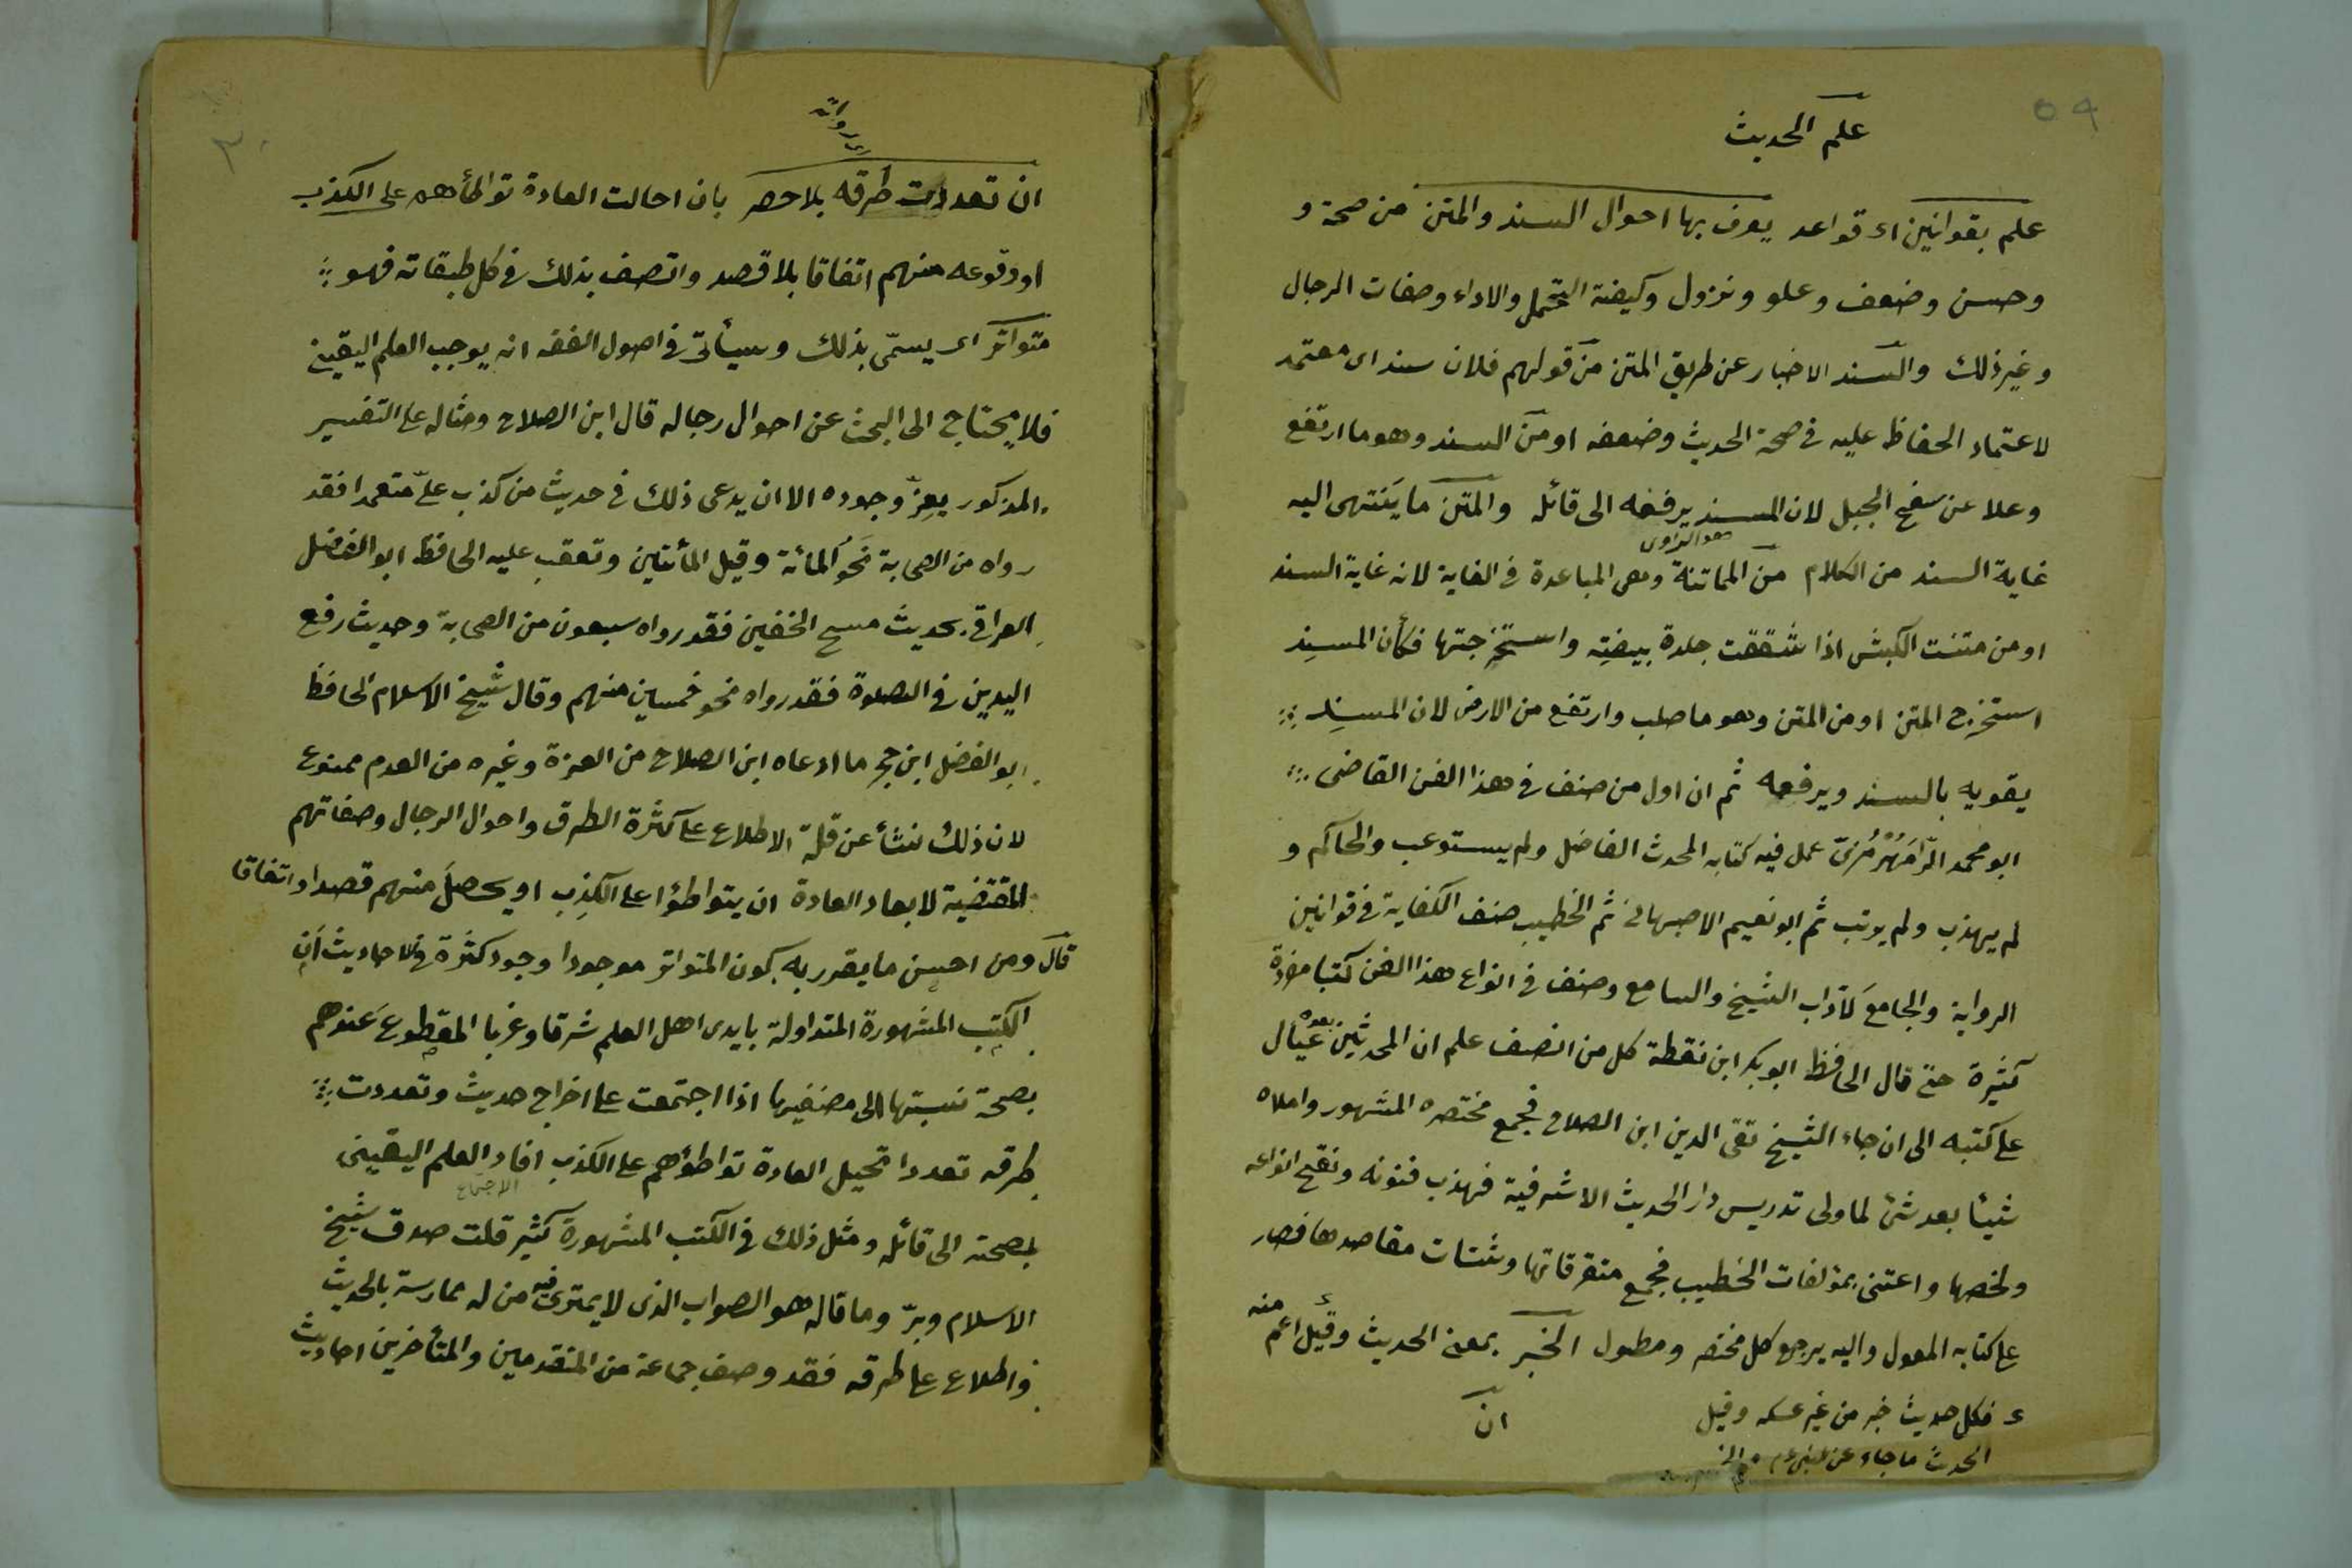 ٥٩
علم الحديث
علم بقوانين اى قواعد يعرف بها احوال السند والمتن من صحة و
وحسن وضعف وعلو ونزول وكيفية التحمل والاداء وصفات الرجال
وغير ذلك والسند الاخبار عن طريق المتن من قولهم فلان سند اى معتمد
لاعتماد الحفاظ عليه فى صحة الحديث وضعفه او من السند وهو ما ارتفع
وعلا عن سفح الجبل لان المسند يرفعه الى قائله والمتن ما ينتهى اليه
غاية السند من الكلام من المماتنة وهى المباعدة فى الغاية لانه غاية السند
او من متنت الكبش اذا شققت جلدة بيضته واستخرجتها فكأن المسنِد
استخرج المتن او من المتن وهو ما صلب وارتفع من الارض لان المسنِد
يقويه بالسند ويرفعه ثم ان اول من صنف فى هذا الفن القاضى
ابو محمد الرَّامَهُرْمُزىّ عمل فيه كتابه المحدث الفاضل ولم يستوعب والحاكم و
لم يهذب ولم يرتب ثم ابو نعيم الاصبهانى ثم الخطيب صنف الكفاية فى قوانين
الرواية والجامعَ لآداب الشيخ والسامع وصنف فى انواع هذا الفن كتبا مفردة
كثيرة حتى قال الحافظ ابو بكر ابن نقطة كل من انصف علم ان المحدثين بعده عيال
على كتبه الى ان جاء الشيخ تقى الدين ابن الصلاح فجمع مختصره المشهور واملاه
شيئا بعد شئ لما ولى تدريس دار الحديث الاشرفية فهذب فنونه ونقح انواعه
ولخصها واعتنى بمؤلفات الخطيب فجمع متفرقاتها وشتات مقاصدها فصار
على كتابه المعول واليه يرجع كل مختصر ومطول الخبر بمعنى الحديث وقيل اعم منه
ء فكل حديث خبر من غير عكسه وقيل
الحديث ما جاء عن النبى عم
انّ
٣٠
اى رواته
ان تعددت طرقه بلا حصر بان احالت العادة تواطأهم على الكذب
او وقوعه منهم اتفاقا بلا قصد واتصف بذلك فى كل طبقاته فهو
متواتر اى يسمّى بذلك وسيأتى فى اصول الفقه انه يوجب العلم اليقينى
فلا يحتاج الى البحث عن احوال رجاله قال ابن الصلاح ومثاله على التفسير
المذكور يعزّ وجوده الا ان يدعى ذلك فى حديث من كذب علىّ متعمدا فقد
رواه من الصحابة نَحوُ المائة وقيل المأتين وتعقب عليه الحافظ ابو الفضل
العراقى بحديث مسح الخفين فقد رواه سبعون من الصحابة وحديث رفع
اليدين فى الصلوة فقد رواه نحو خمسين منهم وقال شيخ الاسلام الحافظ
ابو الفضل ابن حجر ما ادعاه ابن الصلاح من العزة وغيره من العدم ممنوع
لان ذلك نشأ عن قلة الاطلاع على كثرة الطرق واحوال الرجال وصفاتهم
المقتضية لابعاد العادة ان يتواطؤا على الكذِب او يحصلَ منهم قصدا او اتفاقا
قال ومن احسن ما يقرر به كون المتواتر موجودا وجود كثرة فى الاحاديث أن
الكتب المشهورة المتداولة بايدى اهل العلم شرقا وغربا المقطوع عندهم
بصحة نسبتها الى مصنفيها اذا اجتمعت على اخراج حديث وتعددت
طرقه تعددا تحيل العادة تواطؤهم على الكذب افاد العلم اليقينى
بصحته الى قائله ومثل ذلك فى الكتب المشهورة كثير قلت صدق شيخ
الاسلام وبرّ وما قاله هو الصواب الذى لا يمترى فيه من له ممارسة بالحديث
واطلاع على طرقه فقد وصف جماعة من المتقدمين والمتأخرين احاديث